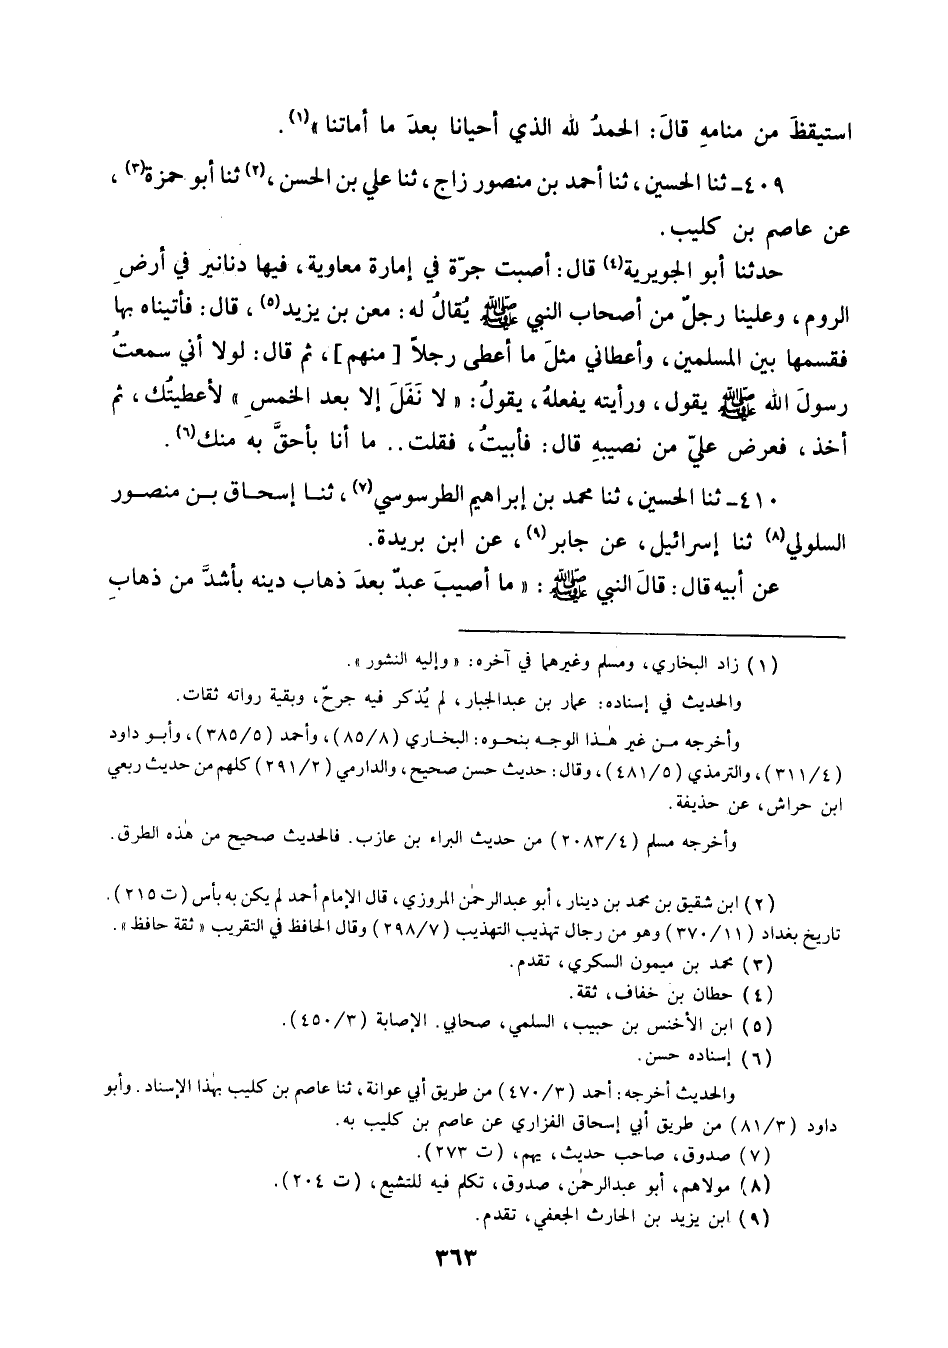 استيقظَ من منامهِ قالَ: الحمدُ لله الذي أحيانا بعدَ ما أماتنا»(١).
٤٠٩ـ ثنا الحسين، ثنا أحمد بن منصور زاج، ثنا علي بن الحسن،(٢) ثنا أبو حمزة(٣)،
عن عاصم بن كليب.
حدثنا أبو الجويرية(٤) قال: أصبت جرّة في إمارة معاوية، فيها دنانير في أرضِ
الروم، وعلينا رجلٌ من أصحاب النبي ﷺ يُقالُ له: معن بن يزيد(٥)، قال: فأتيناه بها
فقسمها بين المسلمين، وأعطاني مثلَ ما أعطى رجلاً [منهم]، ثم قال: لولا أني سمعتُ
رسولَ الله ﷺ يقول، ورأيته يفعلهُ، يقولُ: «لا نَفَلَ إلا بعد الخمسِ» لأعطيتُك، ثم
أخذ، فعرض عليّ من نصيبهِ قال: فأبيتُ، فقلت.. ما أنا بأحقَّ به منك(٦).
٤١٠ـ ثنا الحسين، ثنا محمد بن إبراهيم الطرسوسي(٧)، ثنـا إسحـاق بـن منصـور
السلولي(٨) ثنا إسرائيل، عن جابر(٩)، عن ابن بريدة.
عن أبيه قال: قالَ النبي ﷺ: «ما أصيبَ عبدٌ بعدَ ذهاب دينه بأشدَّ من ذهابِ
(١) زاد البخاري، ومسلم وغيرهما في آخره: «وإليه النشور».
والحديث في إسناده: عمار بن عبدالجبار، لم يُذكر فيه جرحٌ، وبقية رواته ثقات.
وأخرجه مـن غير هٰـذا الوجـه بنحـوه: البخـاري (٨٥/٨)، وأحمد (٣٨٥/٥)، وأبـو داود
(٣١١/٤)، والترمذي (٤٨١/٥)، وقال: حديث حسن صحيح، والدارمي (٢٩١/٢) كلهم من حديث ربعي
ابن حراش، عن حذيفة.
وأخرجه مسلم (٢٠٨٣/٤) من حديث البراء بن عازب. فالحديث صحيح من هٰذه الطرق.
(٢) ابن شقيق بن محمد بن دينار، أبو عبدالرحمٰن المروزي، قال الإمام أحمد لم يكن به بأس (ت ٢١٥).
تاريخ بغداد (٣٧٠/١١) وهو من رجال تهذيب التهذيب (٢٩٨/٧) وقال الحافظ في التقريب «ثقة حافظ».
(٣) محمد بن ميمون السكري، تقدم.
(٤) حطان بن خفاف، ثقة.
(٥) ابن الأخنس بن حبيب، السلمي، صحابي. الإصابة (٤٥٠/٣).
(٦) إسناده حسن.
والحديث أخرجه: أحمد (٤٧٠/٣) من طريق أبي عوانة، ثنا عاصم بن كليب بهٰذا الإسناد. وأبو
داود (٨١/٣) من طريق أبي إسحاق الفزاري عن عاصم بن كليب به.
(٧) صدوق، صاحب حديث، يهم، (ت ٢٧٣).
(٨) مولاهم، أبو عبدالرحمٰن، صدوق، تكلم فيه للتشيع، (ت ٢٠٤).
(٩) ابن يزيد بن الحارث الجعفي، تقدم.
٣٦٣